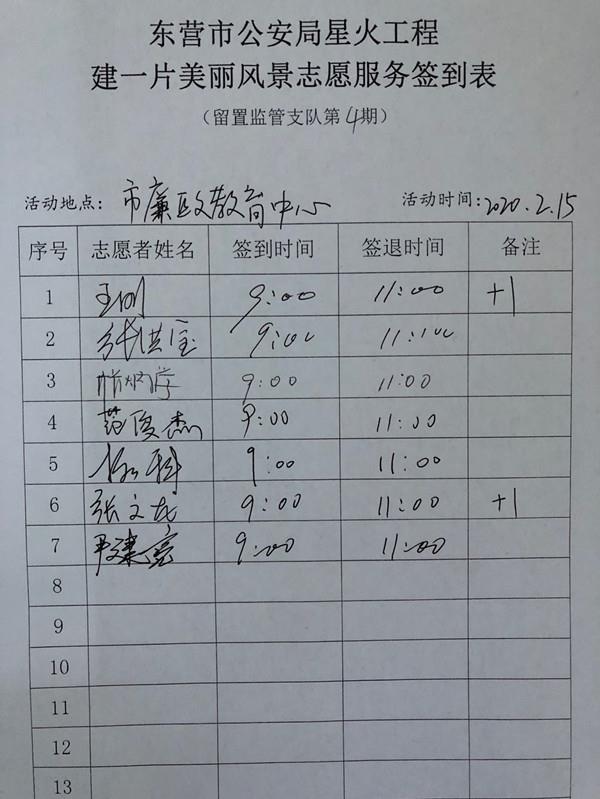 东营市公安局星火工程
建一片美丽风景志愿服务签到表
（留置监管支队第4期）
活动地点：市廉政教育中心 活动时间：2020.2.15
序号 志愿者姓名 签到时间 签退时间 备注
1 王刚 9:00 11:00 +1
2 张洪宝 9:00 11:00
3 9:00 11:00
4 范俊杰 9:00 11:00
5 9:00 11:00
6 张文龙 9:00 11:00 +1
7 建亮 9:00 11:00
8
9
10
11
12
13